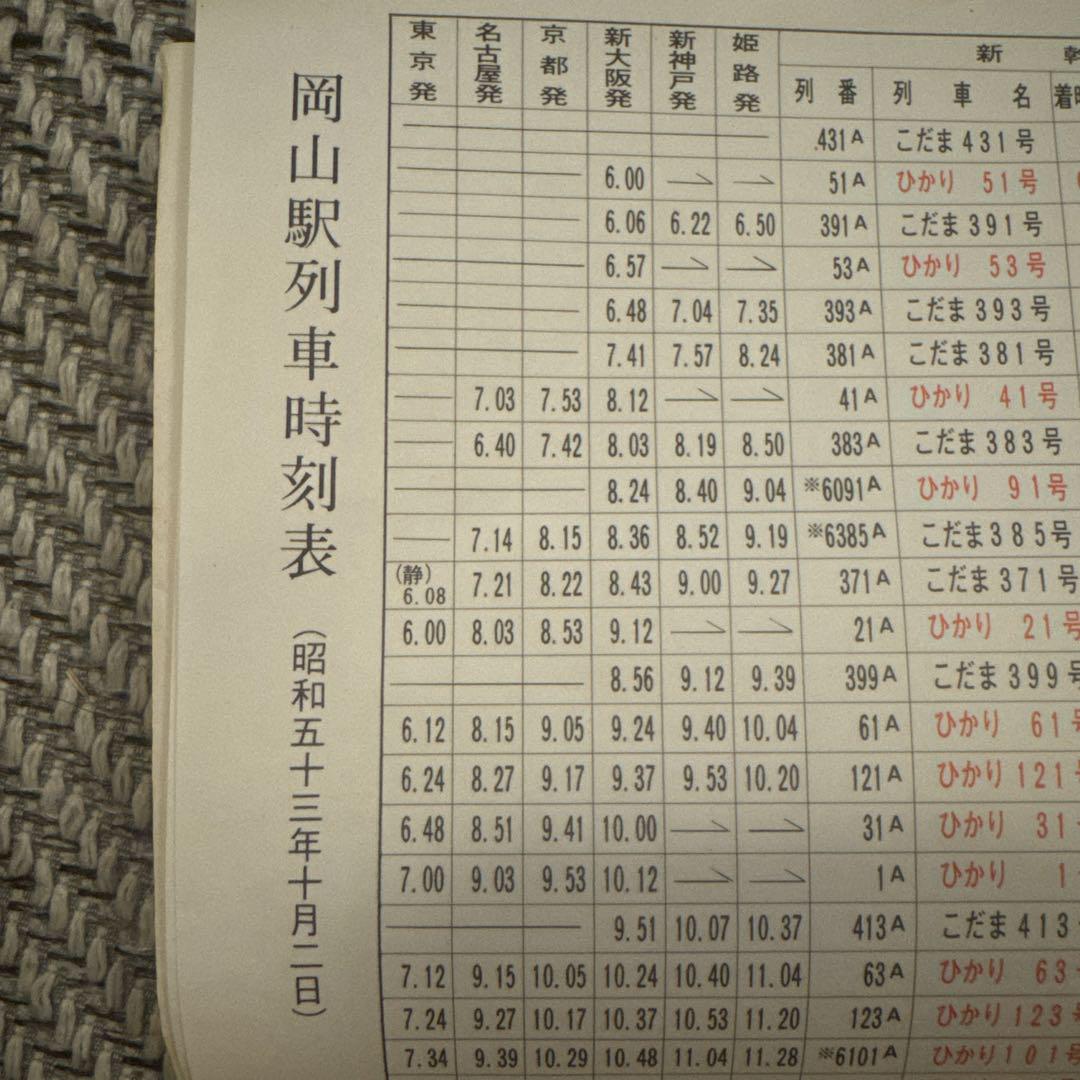 岡山駅列車時刻表（昭和五十三年十月二日）
東京発 名古屋発 京都発 新大阪発 新神戸発 姫路発 新
列番 列車名
431A こだま431号
6.00 51A ひかり 51号
6.06 6.22 6.50 391A こだま391号
6.57 53A ひかり 53号
6.48 7.04 7.35 393A こだま393号
7.41 7.57 8.24 381A こだま381号
7.03 7.53 8.12 41A ひかり 41号
6.40 7.42 8.03 8.19 8.50 383A こだま383号
8.24 8.40 9.04 ※6091A ひかり 91号
7.14 8.15 8.36 8.52 9.19 ※6385A こだま385号
(静) 6.08 7.21 8.22 8.43 9.00 9.27 371A こだま371号
6.00 8.03 8.53 9.12 21A ひかり 21号
8.56 9.12 9.39 399A こだま399号
6.12 8.15 9.05 9.24 9.40 10.04 61A ひかり 61号
6.24 8.27 9.17 9.37 9.53 10.20 121A ひかり121号
6.48 8.51 9.41 10.00 31A ひかり 31号
7.00 9.03 9.53 10.12 1A ひかり 1
9.51 10.07 10.37 413A こだま413
7.12 9.15 10.05 10.24 10.40 11.04 63A ひかり 63
7.24 9.27 10.17 10.37 10.53 11.20 123A ひかり123号
7.34 9.39 10.29 10.48 11.04 11.28 ※6101A ひかり101号